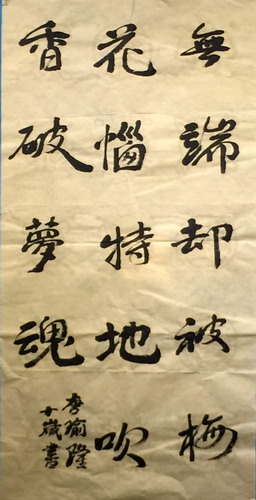 無端却被梅
花惱特地吹
香破夢魂
李瑜隆
十歲書